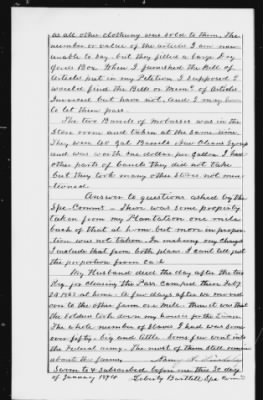 as all other clothing was sold to them. The
number or value of the articles I am now
unable to say. but they filled a large Dry
Goods Box. When I furnished the Bill of
Articles put in my Petition I supposed I
would find the Bills or Mem. of Articles
Invoiced but have not. And I may have
to let them pass.
The two Barrels of molasses was in the
Store room and taken at the same time.
They were 40 Gal Barrels New Cane Syrup
and was worth one dollar per gallon. I had
other parts of barrels they did not take
but they took many other stores not men-
tioned.
Answer to questions asked by the
Spe. Comm. There was some property
taken from my Plantation one mile
back of that at home. but more in propor-
tion was not taken. In making my charges
I include that from both places. I can't tell just
the proportion from each.
My Husband died the day after the two
Reg. for closing the Pass Camped there Feby
24 1863 at home. A few days after we moved
on to the other farm one mile. Then it was that
the Soldiers tore down my house for the Timber.
The whole number of Slaves I had was some
over fifty, big and little. Some few went into
the Federal army. The most of them still remain
about the farm.
Sworn to & subscribed before me this 30 day
of January 1874
Bartlett, Spe Com